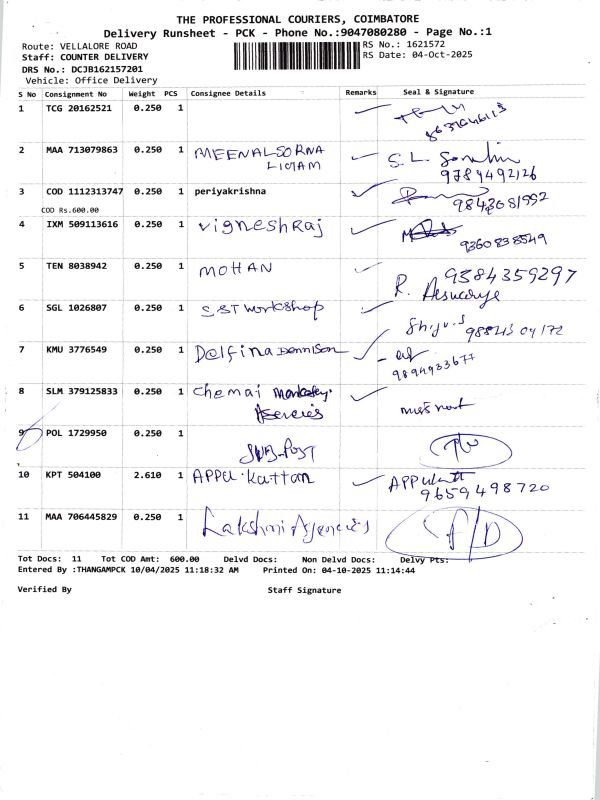 THE PROFESSIONAL COURIERS, COIMBATORE
Delivery Runsheet - PCK - Phone No.:9047080280 - Page No.:1
Route: VELLALORE ROAD
RS No.: 1621572
Staff: COUNTER DELIVERY
RS Date: 04-Oct-2025
DRS No.: DCJB162157201
Vehicle: Office Delivery
S No Consignment No Weight PCS Consignee Details Remarks Seal & Signature
1 TCG 20162521 0.250 1
2 MAA 713079863 0.250 1 MEENALSORNA
LIGAM
S.L.
9789492126
3 COD 1112313747 0.250 1 periyakrishna
9843081992
COD Rs.600.00
4 IXM 509113616 0.250 1 VigneshRaj
9360838549
5 TEN 8038942 0.250 1 MOHAN
9384359297
R.
6 SGL 1026807 0.250 1 SBT Workshop
7 KMU 3776549 0.250 1 Delfina Dennison
9894933677
8 SLM 379125833 0.250 1 Chennai
Agencies
9 POL 1729950 0.250 1
SUB-POST
10 KPT 504100 2.610 1 APPLE Kuttan
9659498720
11 MAA 706445829 0.250 1 Lakshmi Agencies
Tot Docs: 11 Tot COD Amt: 600.00 Delvd Docs: Non Delvd Docs: Delvy Pts:
Entered By :THANGAMPCK 10/04/2025 11:18:32 AM Printed On: 04-10-2025 11:14:44
Verified By Staff Signature